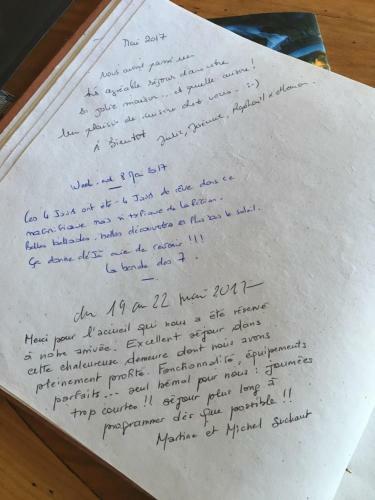 Mai 2017
Nous avons passé un
très agréable séjour dans votre
si jolie maison... et quelle cuisine!
Un plaisir de cuisiner chez vous. :-)
À Bientôt Julie, Jérémie, Raphaël & Manon
Week-end 8 Mai 2017
Ces 4 Jours ont été - 4 Jours de rêve dans ce
magnifique mas si typique de la Région.
Belles ballades, belles découvertes et Plus bas le soleil.
Ça donne déjà envie de revenir !!!
La bande des 7.
du 19 au 22 mai 2017
Merci pour l'accueil qui nous a été réservé
à notre arrivée. Excellent séjour dans
cette chaleureuse demeure dont nous avons
pleinement profité. Fonctionnalité, équipements
parfaits... seul bémol pour nous : journées
trop courtes !! séjour plus long à
programmer dès que possible !!
Martine et Michel Suchaut